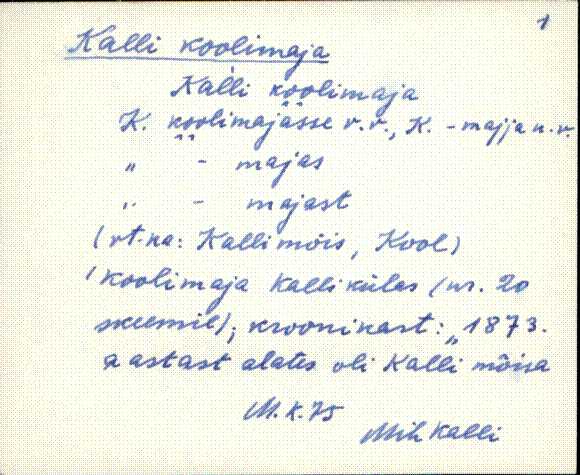 1
Kalli koolimaja
Kalli koolimaja
K. koolimajasse v.v., K. -majja u.v.
" - majas
" - majast
(vt.ka: Kalli mõis, Kool)
/koolimaja Kalli külas (nr. 20
skeemil); kroonikast: "1873.
aastast alates oli Kalli mõisa
M.K.75
Mih Kalli